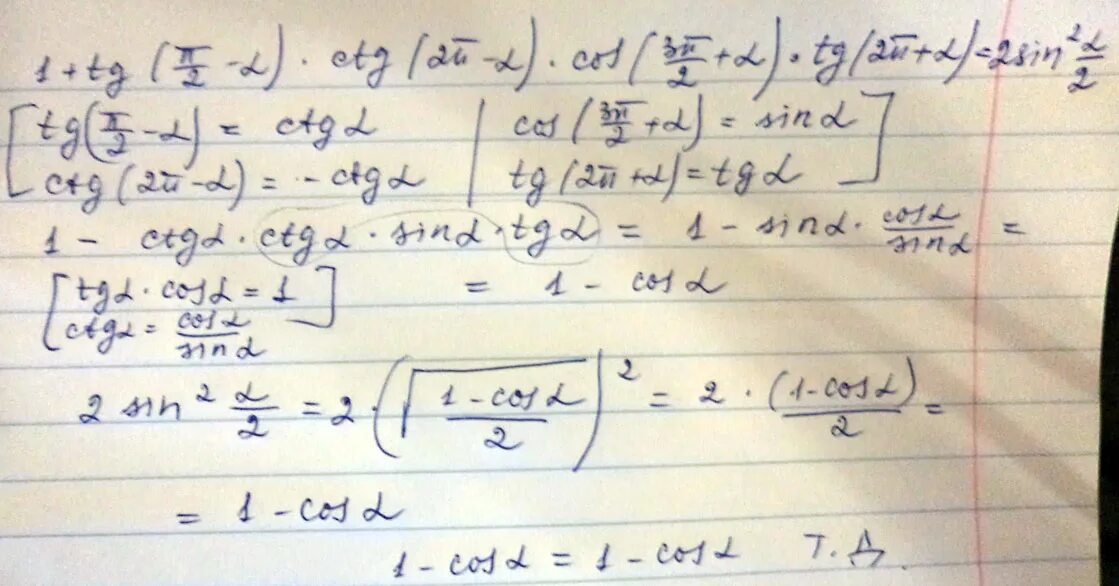 1 + tg (π/2 - α) · ctg (2π - α) · cos (3π/2 + α) · tg (2π + α) = 2 sin² α/2
[ tg (π/2 - α) = ctg α | cos (3π/2 + α) = sin α ]
[ ctg (2π - α) = - ctg α | tg (2π + α) = tg α ]
1 - ctg α · ctg α · sin α · tg α = 1 - sin α · cos α / sin α =
[ tg α · cos α = 1 ] = 1 - cos α
[ ctg α = cos α / sin α ]
2 sin² α/2 = 2 · (√((1 - cos α)/2))² = 2 · (1 - cos α)/2 =
= 1 - cos α
1 - cos α = 1 - cos α т. д.